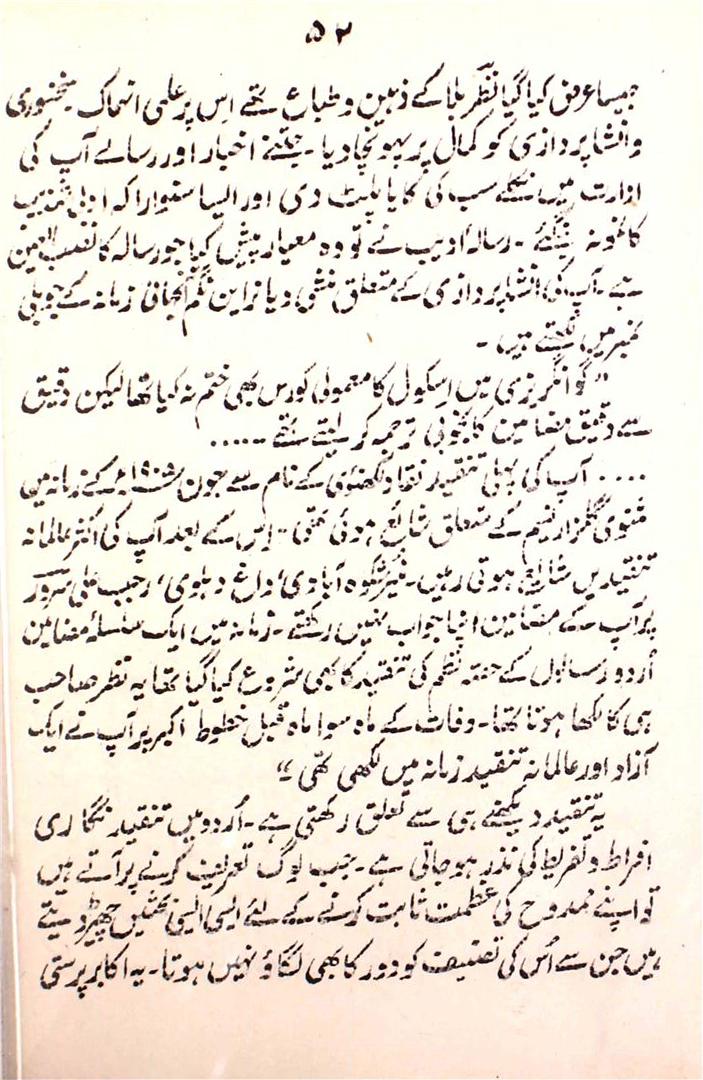 ۵۲
جیسا عرض کیا گیا نظرؔ بلا کے ذہین و طباع تھے اس پر علمی انہماک سخنوری
و انشا پردازی کو کمال پر پہونچا دیا۔ جتنے اخبار اور رسالے آپ کی
ادارت میں نکلے سب کی کایا پلٹ دی اور ایسا سنوارا کہ ادبی تہذیب
کا نمونہ بنگئے۔ رسالہ ادیب نے تو وہ معیار پیش کیا جو رسالہ کا نصب العین
ہے۔ آپ کی انشا پردازی کے متعلق منشی دیا نراین نگم آنجہانی زمانہ کے جوبلی
نمبر میں لکھتے ہیں۔
"گو انگریزی میں اسکول کا معمولی کورس بھی ختم نہ کیا تھا لیکن دقیق
سے دقیق مضامین کا بخوبی ترجمہ کر لیتے تھے .....
.... آپ کی پہلی تنقید نقاد لکھنوی کے نام سے جون ۱۹۰۵ء کے زمانہ میں
مثنوی گلزار نسیم کے متعلق شایع ہوئی تھی۔ اس کے بعد آپ کی اکثر عالمانہ
تنقیدیں شایع ہوتی رہیں۔ منیرؔ شکوہ آبادی، داغؔ دہلوی، رجب علی سرورؔ
پر آپ کے مضامین اپنا جواب نہیں رکھتے۔ زمانہ میں ایک سلسلۂ مضامین
اُردو رسالوں کے حصہ نظم کی تنقید کا بھی شروع کیا گیا تھا یہ نظر صاحب
ہی کا لکھا ہوتا تھا۔ وفات کے ماہ سوا ماہ قبل خطوط اکبر پر آپ نے ایک
آزاد اور عالمانہ تنقید زمانہ میں لکھی تھی"
یہ تنقید دیکھنے ہی سے تعلق رکھتی ہے۔ اُردو میں تنقید نگاری
افراط و تفریط کی نذر ہو جاتی ہے۔ جب لوگ تعریف کرنے پر آتے ہیں
تو اپنے ممدوح کی عظمت ثابت کرنے کے لئے ایسی ایسی بحثیں چھیڑ دیتے
ہیں جن سے اُس کی تصنیف کو دور کا بھی لگاؤ نہیں ہوتا۔ یہ اکابر پرستی